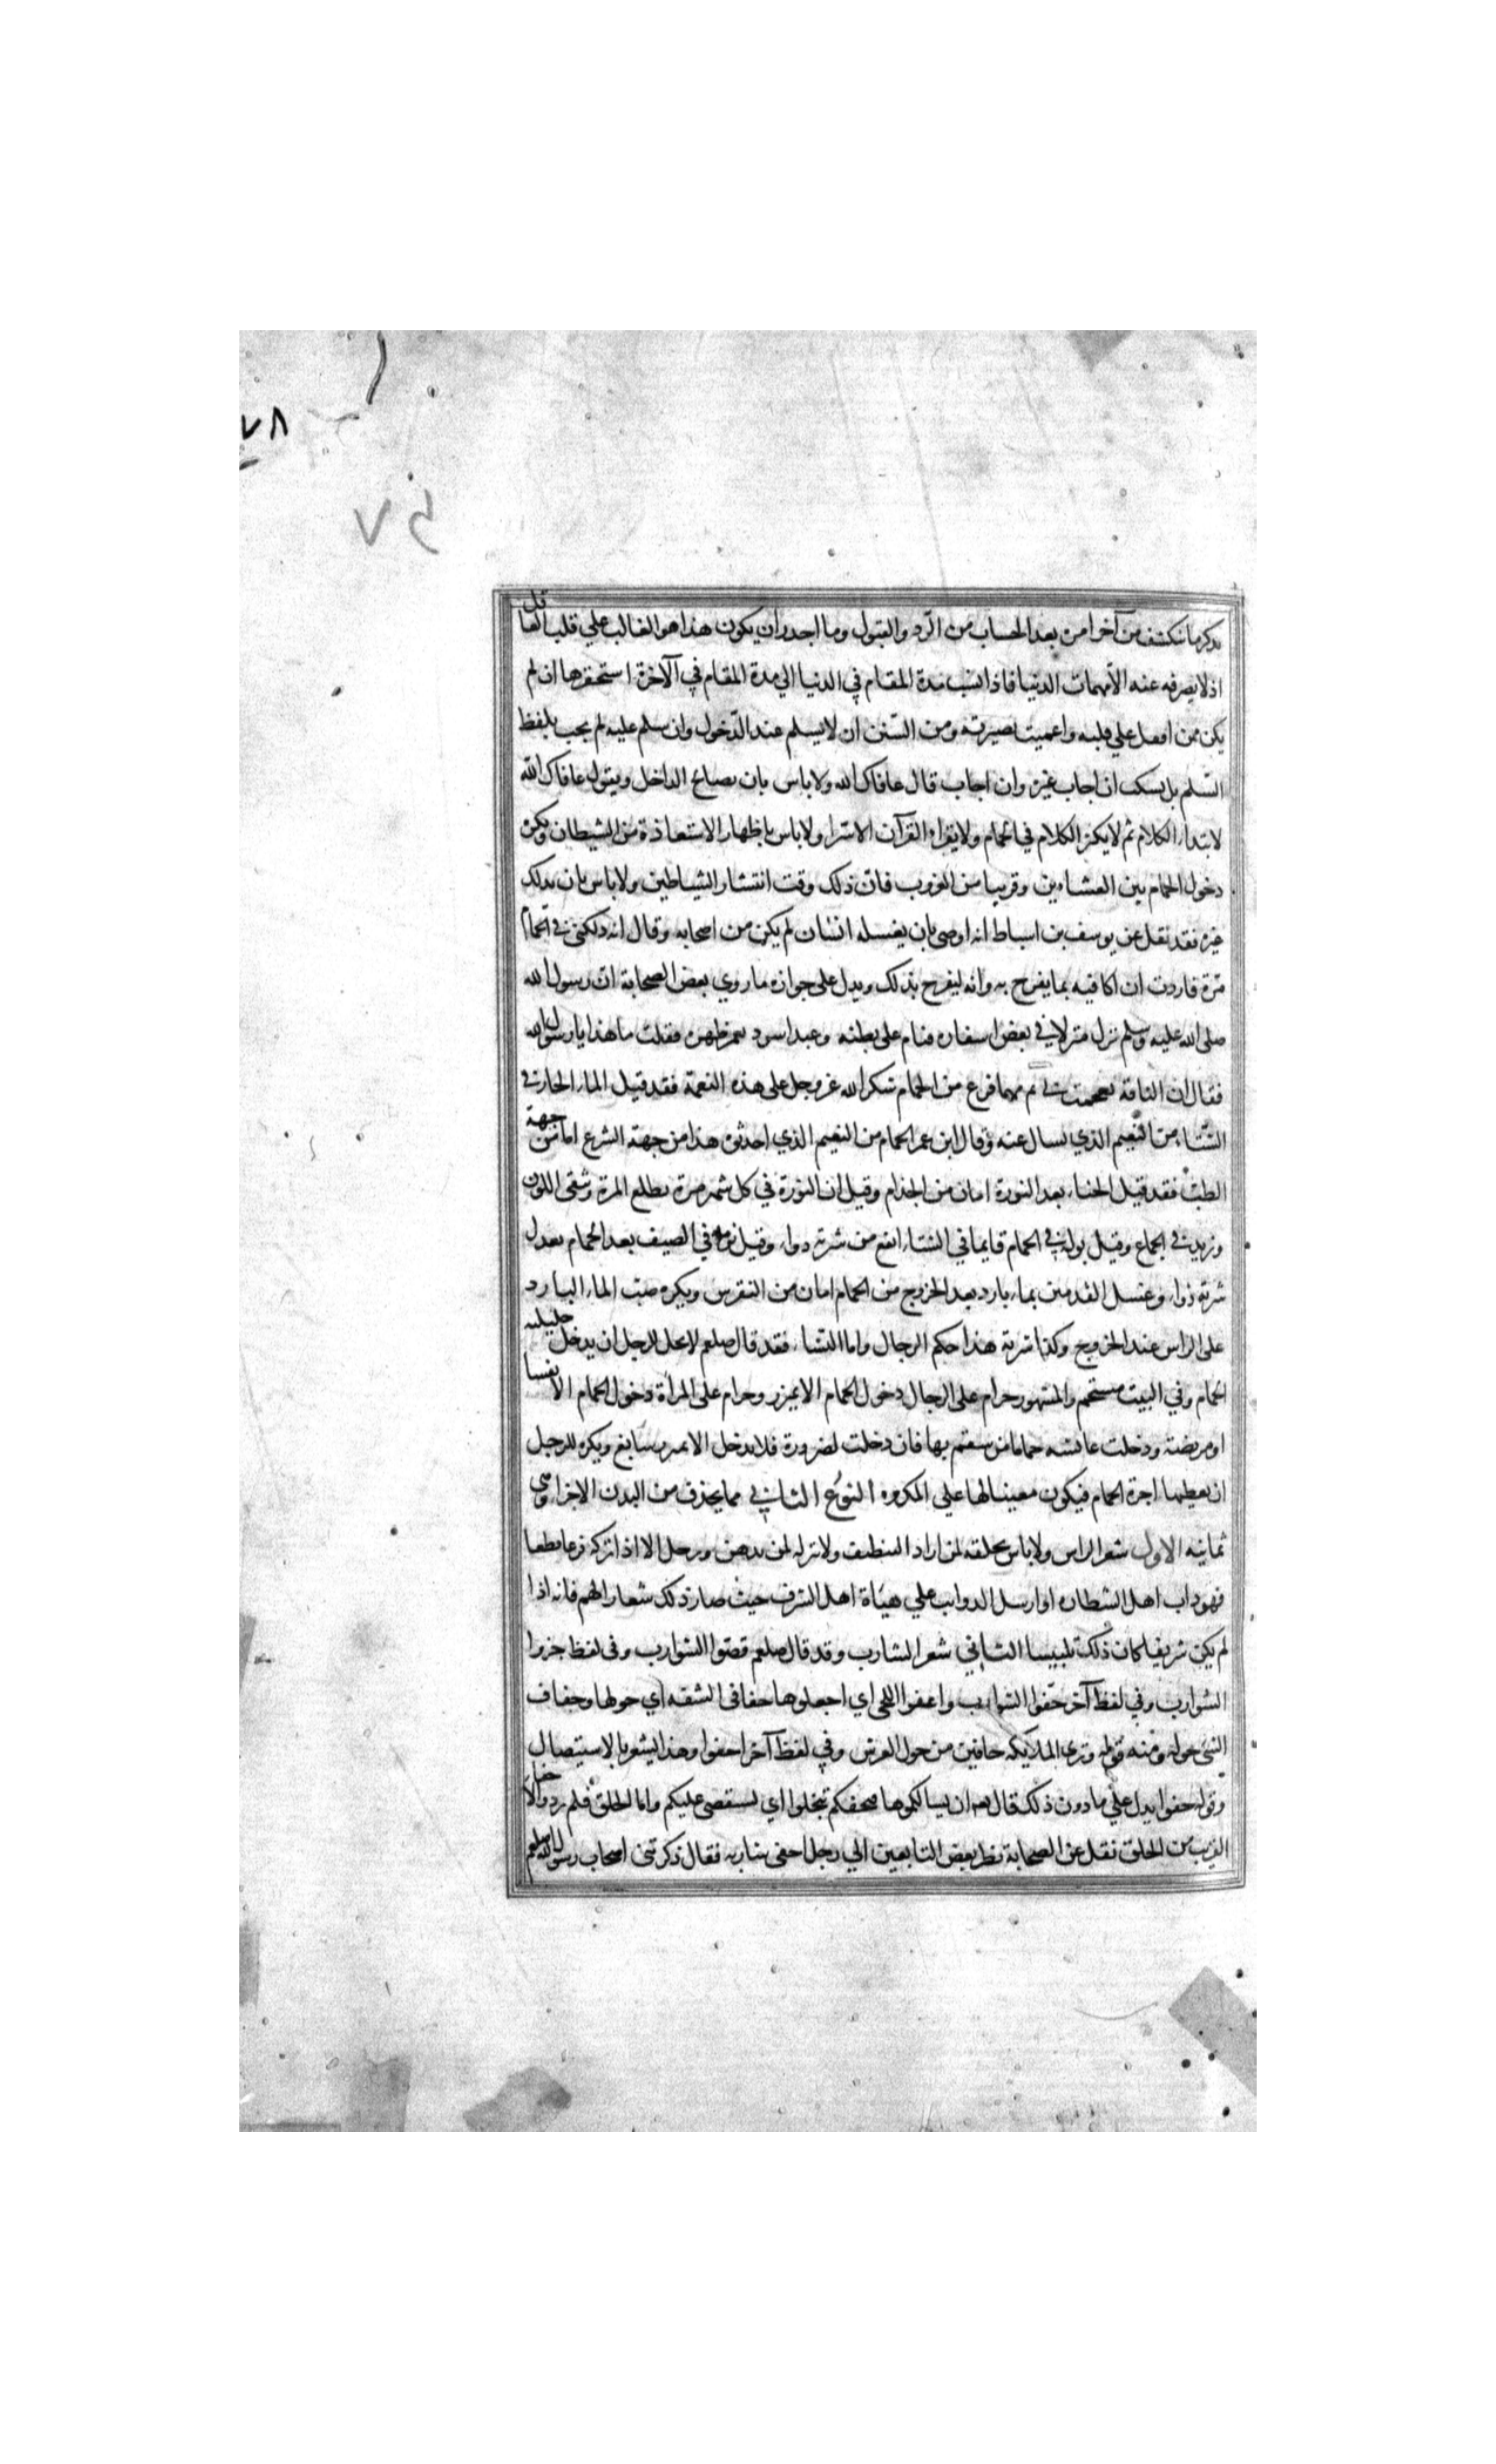 ٧٨
٧٤
يذكر ما ينكشف من آخر امره بعد الحساب من الرد والقبول وما اجدر ان يكون هذا هو الغالب علي قلب العاقل
اذ لا يصرفه عنه الا مهمات الدنيا فاذا نسب مدة المقام في الدنيا الي مدة المقام في الآخرة استحقرها ان لم
يكن ممن اقفل علي قلبه واعميت بصيرته ومن السنن ان لا يسلم عند الدخول وان سلم عليه لم يجب بلفظ
السلم بل يسكت ان اجاب غيره وان اجاب قال عافاك الله ولا باس بان يصافح الداخل ويقول عافاك الله
لابتداء الكلام ثم لا يكثر الكلام في الحمام ولا يقراء القرآن الا سرا ولا باس باظهار الاستعاذة من الشيطان ويكره
دخول الحمام بين العشاءين وقريبا من الغروب فان ذلك وقت انتشار الشياطين ولا باس بان يدلك
غيره فقد نقل عن يوسف بن اسباط انه اوصى بان يغسله انسان لم يكن من اصحابه وقال انه دلكني في الحمام
مرة فاردت ان اكافيه بما يفرح به وانه ليفرح بذلك ويدل على جوازه ما روي بعض الصحابة ان رسول الله
صلى الله عليه وسلم نزل منزلا في بعض اسفاره فنام على بطنه وعبد اسود يغمز ظهره فقلت ما هذا يا رسول الله
فقال ان الناقة تقحمت بي ثم مهما فرغ من الحمام شكر الله عز وجل على هذه النعمة فقد قيل الماء الحار في
الشتاء من النعيم الذي يسال عنه وقال ابن عمر الحمام من النعيم الذي احدثوه هذا من جهة الشرع اما من جهة
الطب فقد قيل الحناء بعد النورة امان من الجذام وقيل ان النورة في كل شهر مرة يطلع المرة وتنقى اللون
وتزيد في الجماع وقيل بوله في الحمام قايما في الشتاء انفع من شربة دواء وقيل نومة في الصيف بعد الحمام يعدل
شربة دواء وغسل القدمين بماء بارد بعد الخروج من الحمام امان من النقرس ويكره صب الماء البارد
على الراس عند الخروج وكذا شربة هذا حكم الرجال واما النساء فقد قال صلعم لا يحل للرجل ان يدخل حليلته
الحمام وفي البيت مستحم والمشهور حرام على الرجال دخول الحمام الا بميزر وحرام على المرأة دخول الحمام الا نفسا
او مريضة ودخلت عائشه حماما من سقم بها فان دخلت لضرورة فلا يدخل الا بميزر سابغ ويكره للرجل
ان يعطيها اجرة الحمام فيكون معينا لها علي المكروه النوع الثاني مما يحذف من البدن الاجزا وهي
ثمانيه الاول شعر الراس ولا باس بحلقه لمن اراد التنظيف ولا تركه لمن يدهن ويرجل الا اذا تركه قزعا قطعا
فهو داب اهل الشطاره او ارسل الدوايب علي هيئاة اهل الشرف حيث صار ذلك شعارا لهم فانه اذا
لم يكن شريفا كان ذلك تلبيسا الثاني شعر الشارب وقد قال صلعم قصوا الشوارب وفي لفظ جزوا
الشوارب وفي لفظ آخر حفوا الشوارب واعفوا اللحى اي اجعلوها حفافى الشفه اي حولها وحفاف
الشئ حوله ومنه قوله وترى الملايكه حافين من حول العرش وفي لفظ آخر احفوا وهذا يشعر بالاستيصال
وقوله حفوا يدل علي ما دون ذلك قال ان يسالكموها فيحفكم تبخلوا اي يستقصى عليكم واما الحلق فلم يرد والاحفا
القريب من الحلق نقل عن الصحابة نظر بعض التابعين الي رجل احفى شاربه فقال ذكرتنى اصحاب رسول الله صلعم